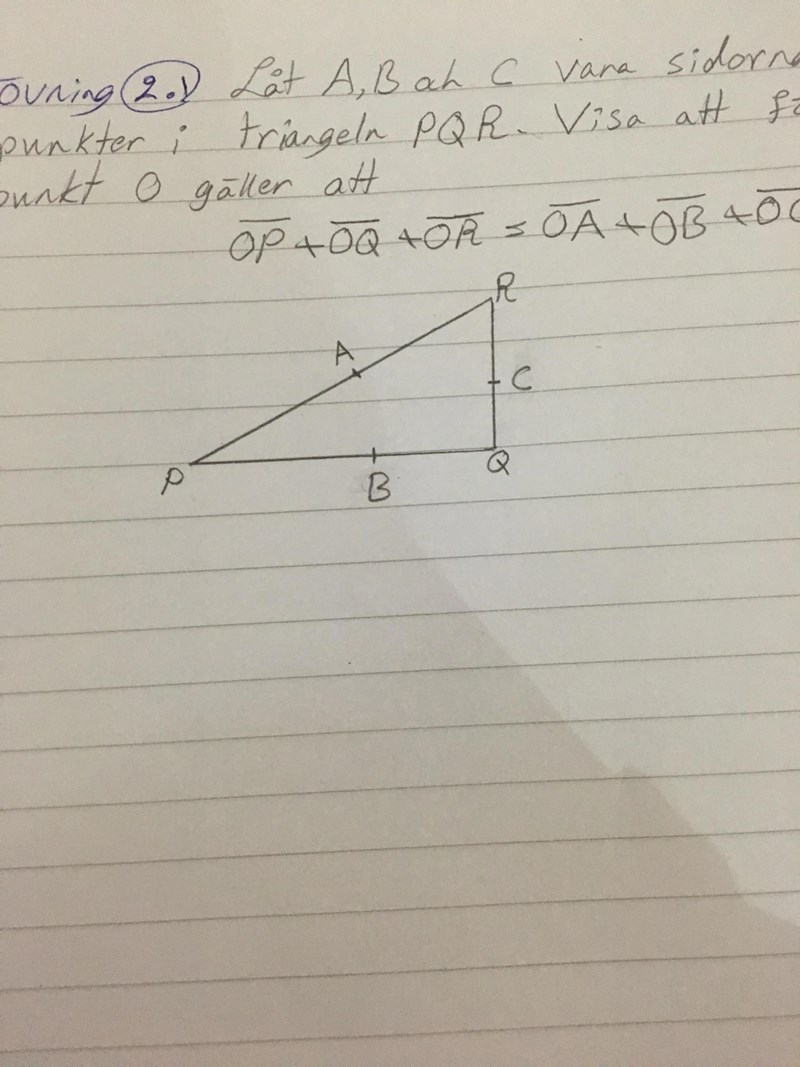 övning 2.1) Låt A, B och C vara sidorna
punkter i triangeln PQR. Visa att
punkt O gäller att
OP + OQ + OR = OA + OB + OC
R
A
C
P
B
Q